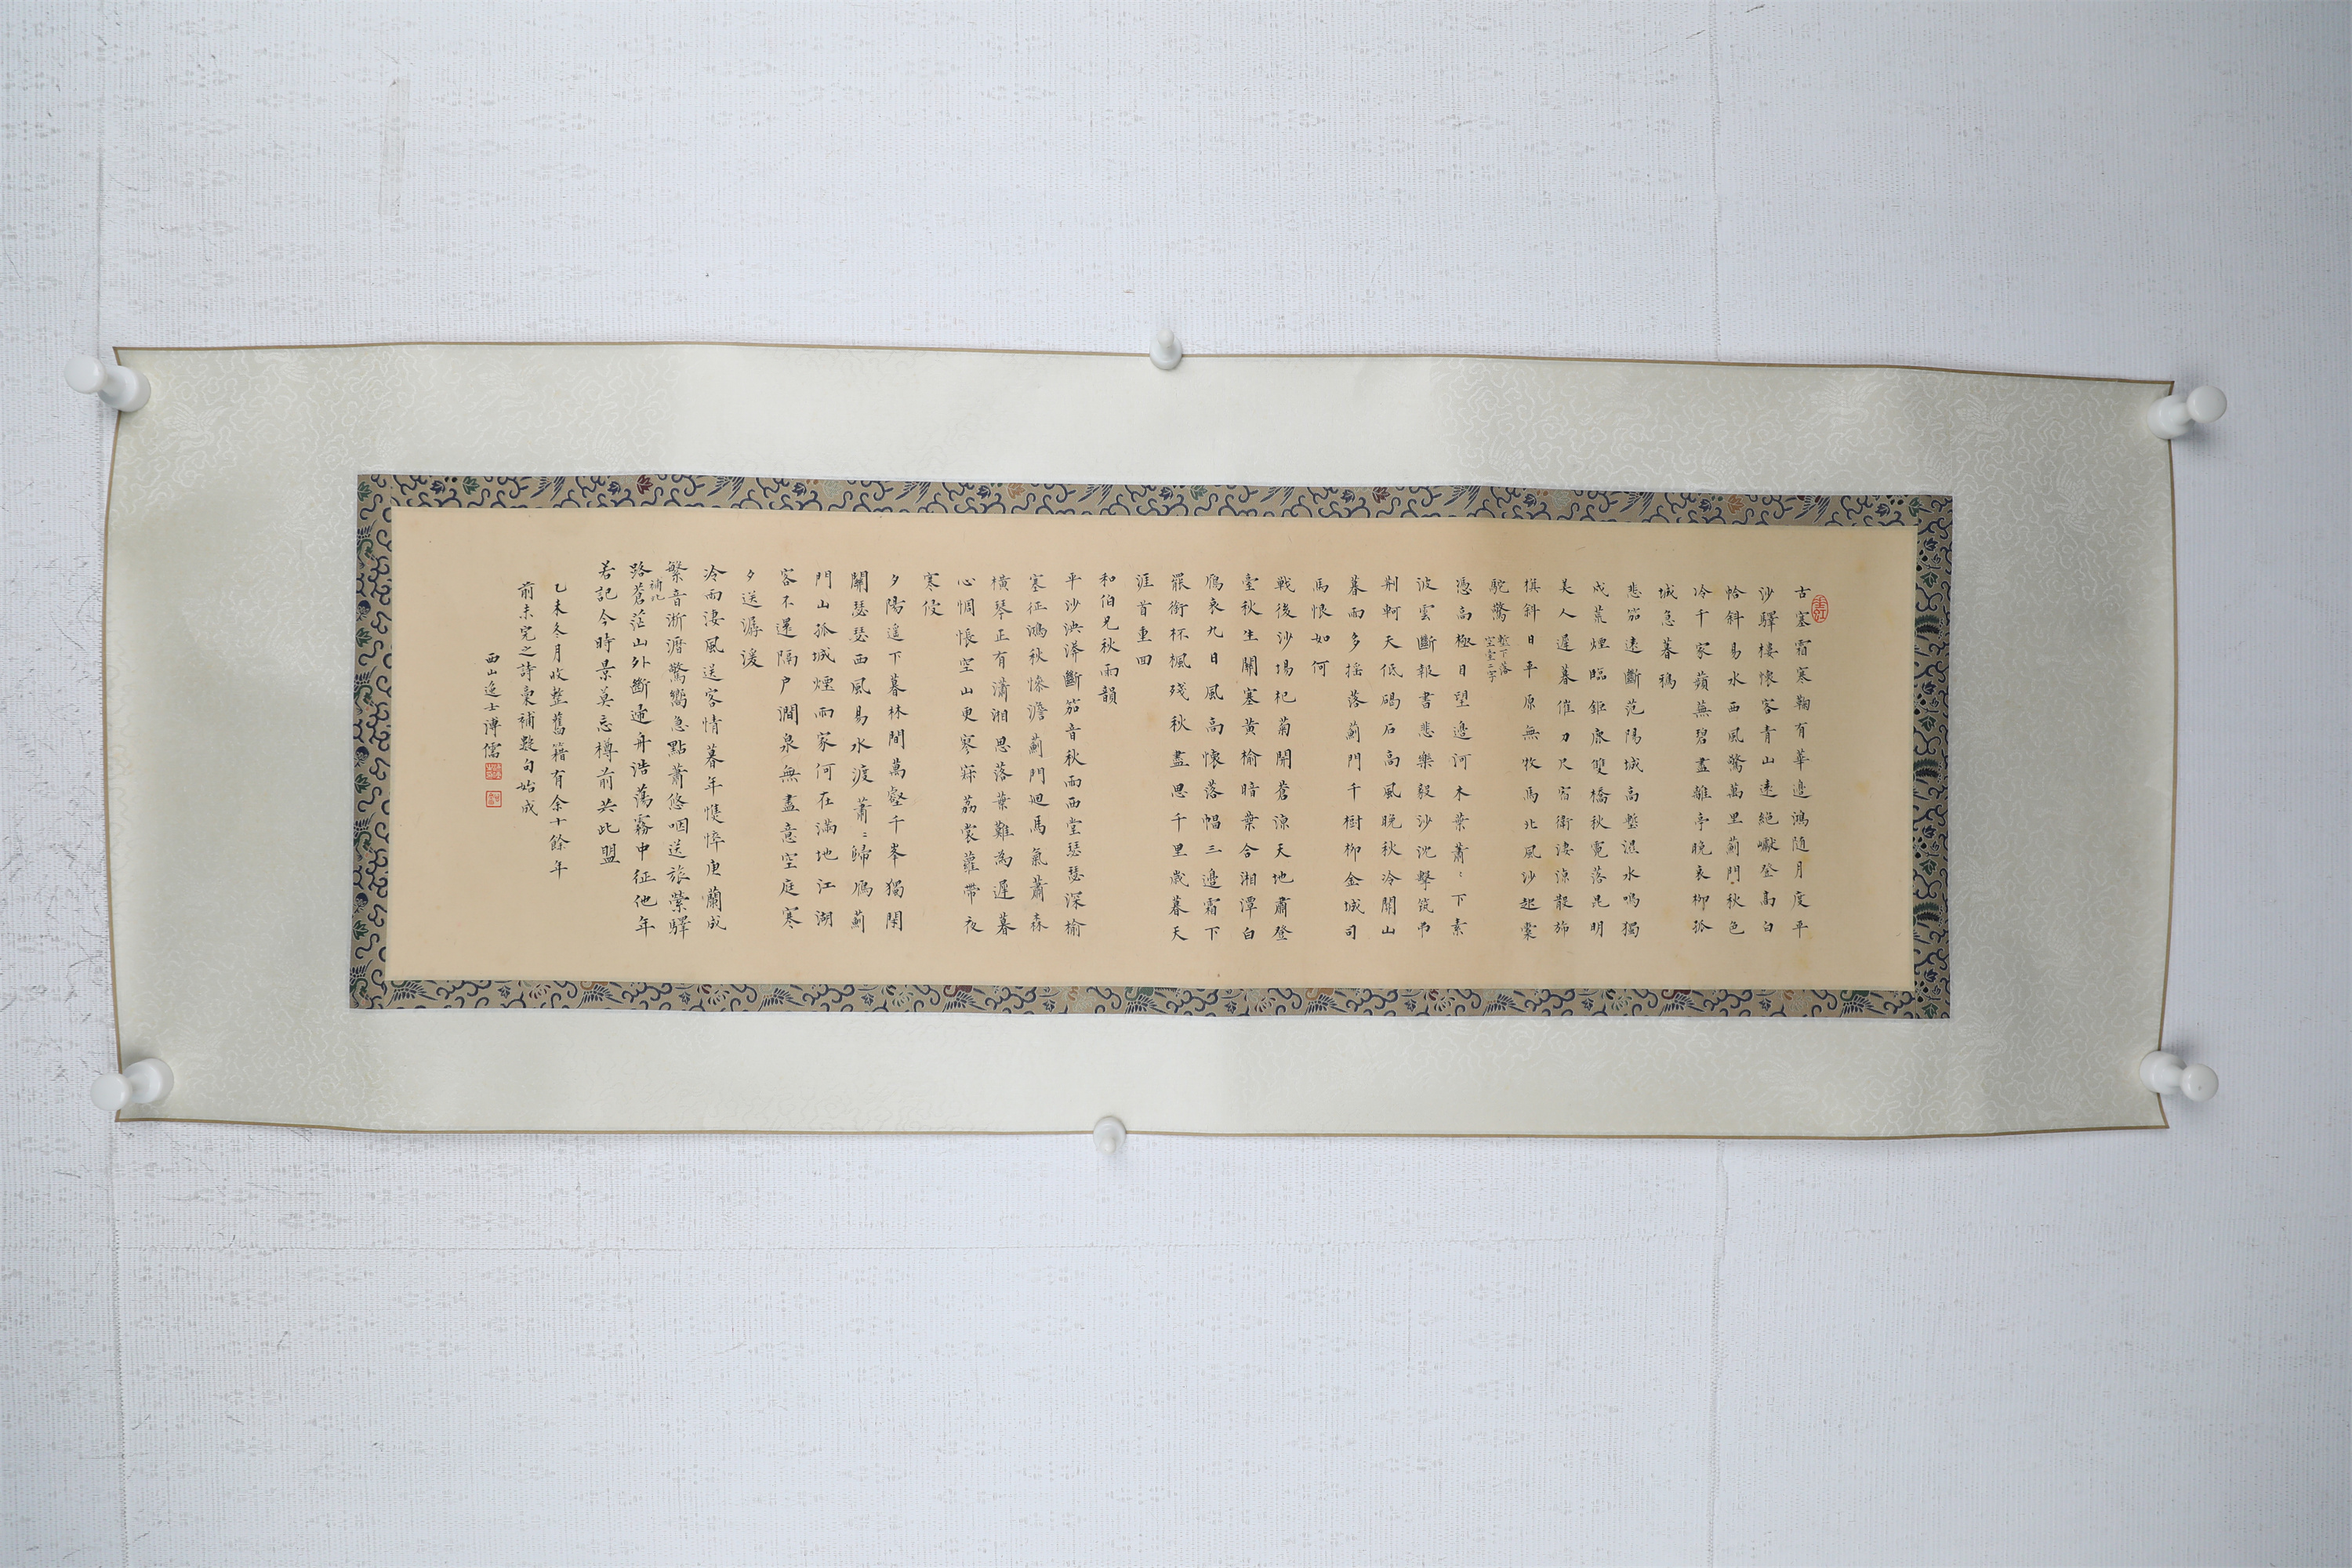 古塞霜寒鞠有華邊鴻隨月度平
沙驛樓懷客青山遠絕巘登高白
恰斜易水西風驚萬里薊門秋色
冷千家蘋蕪碧盡離亭晚衰柳孤
城急暮鴉
悲笳遠斷范陽城高塹濕水鳴獨
成荒煙臨鉅鹿雙橋秋霓落昆明
美人遲暮催刀尺宿衛淒涼散旆
旌斜日平原無牧馬北風沙起橐
駝驚
塹下落
空壘二字
憑高極目望邊河木葉蕭:下素
波雲斷報書悲樂毅沙沈擊筑弔
荆軻天低碣石高風晚秋冷關山
暮雨多搖落薊門千樹柳金城司
馬恨如何
戰後沙場杞菊開蒼涼天地肅登
臺秋生關塞黃榆暗葉合湘潭白
鴈哀九日風高懷落帽三邊霜下
罷銜杯楓殘秋盡思千里歲暮天
涯首重回
和伯兄秋雨韻
平沙泱漭斷笳音秋雨西堂瑟瑟深榆
塞征鴻秋慘澹薊門迴馬氣蕭森
橫琴正有瀟湘思落葉難為遲暮
心惆悵空山更寥寂荔裳蘿帶夜
寒侵
夕陽遙下暮林間萬壑千峯獨閉
關瑟瑟西風易水渡蕭:歸鴈薊
門山孤城煙雨家何在滿地江湖
客不還隔户澗泉無盡意空庭寒
夕送潺湲
冷雨淒風送客情暮年憔悴庾蘭成
繁音淅瀝驚嚮急點蕭悠咽送旅縈驛
補此
路蒼茫山外斷連舟浩蕩霧中征他年
若記今時景莫忘樽前共此盟
乙未冬月收整舊籍有余十餘年
前未完之詩稾補數句始成
西山逸士溥儒